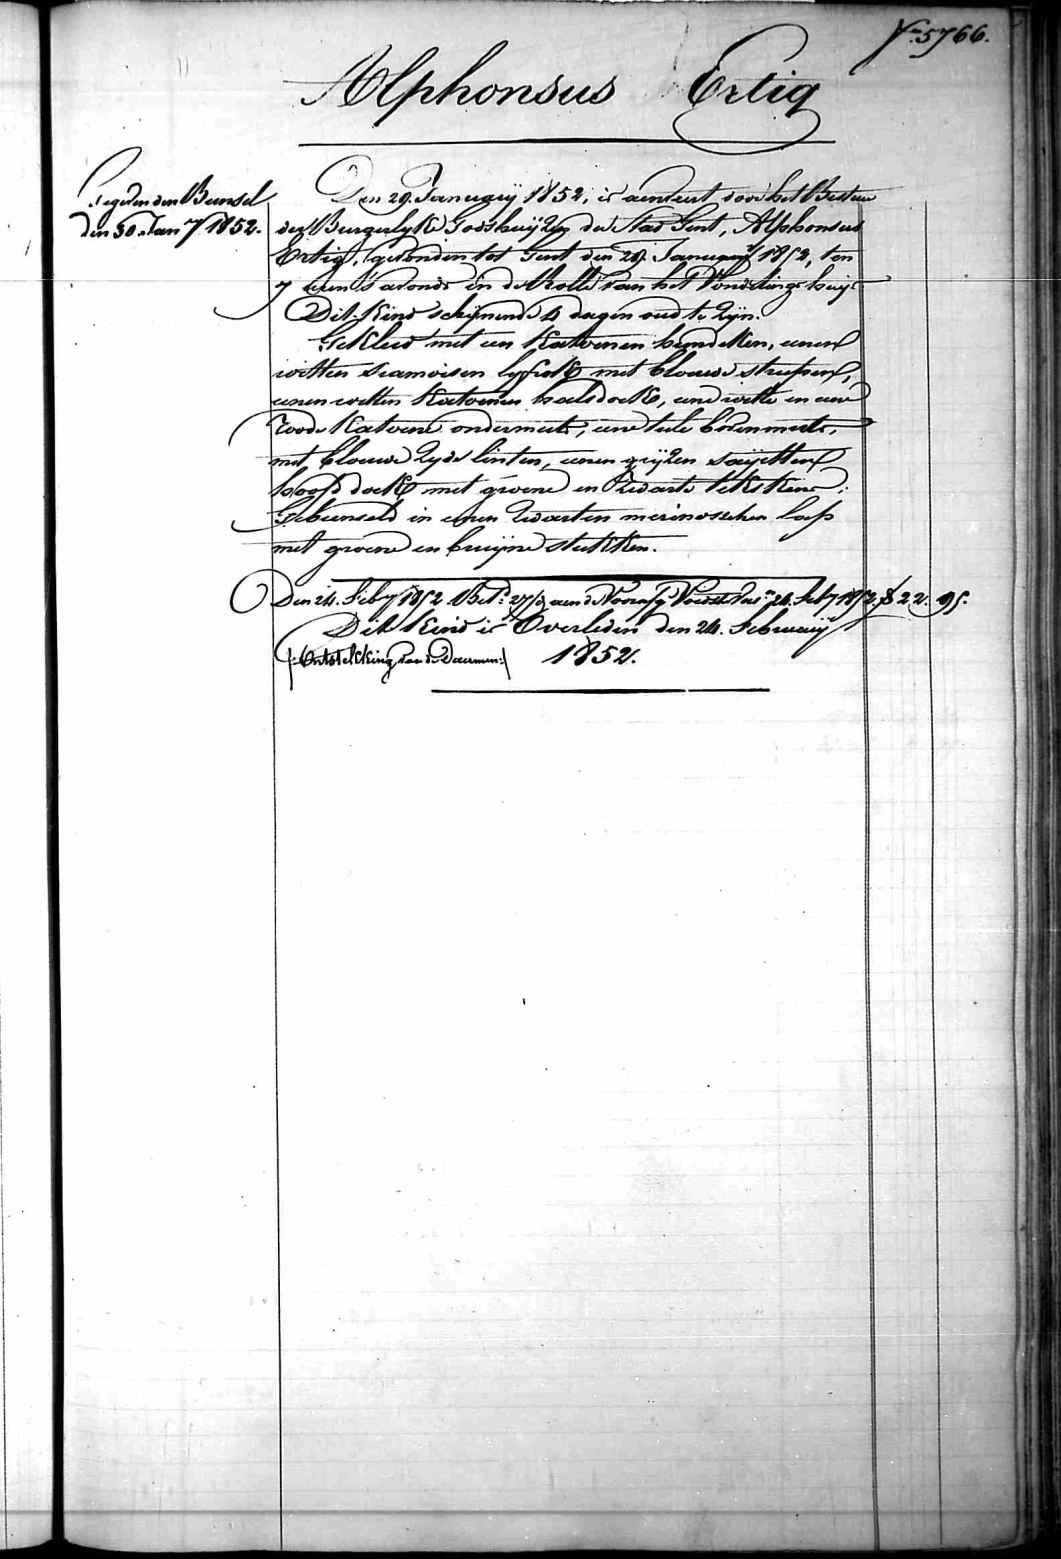 Nr 5766.
Alphonsus Ertig
den Bunsel
den 30 Jany 1852.
Den 29 January 1852, is aenveirt door het Bestuer
der Burgerlyke Godshuyzen der Stad Gent, Alphonsus
Ertig, gevonden tot Gent den 29 January 1852, ten
7 uren 's avonds in de Rolle van het Vondelinge huys
Dit Kind schynende 4 dagen oud te zyn.
Gekleed met een Katoenen hemdeken, eenen
witten siamoisen lyfrok met blauwe streepen,
eenen witten Katoenen halsdoek, eene witte en eene
roode Katoene ondermuts, eene tule bovenmuts,
met blauwe zyde linten, eenen gryzen sayetten
hoofd doek met groene en zwarte
Gebunseld in eenen zwarten merinoschen lap
met groene en bruyne stukken.
Den 24 Feby 1852 24 Feby 1852. 22. 95.
Dit Kind is Overleden den 24. February
(:Ontstekking van de Daermen:) 1852.